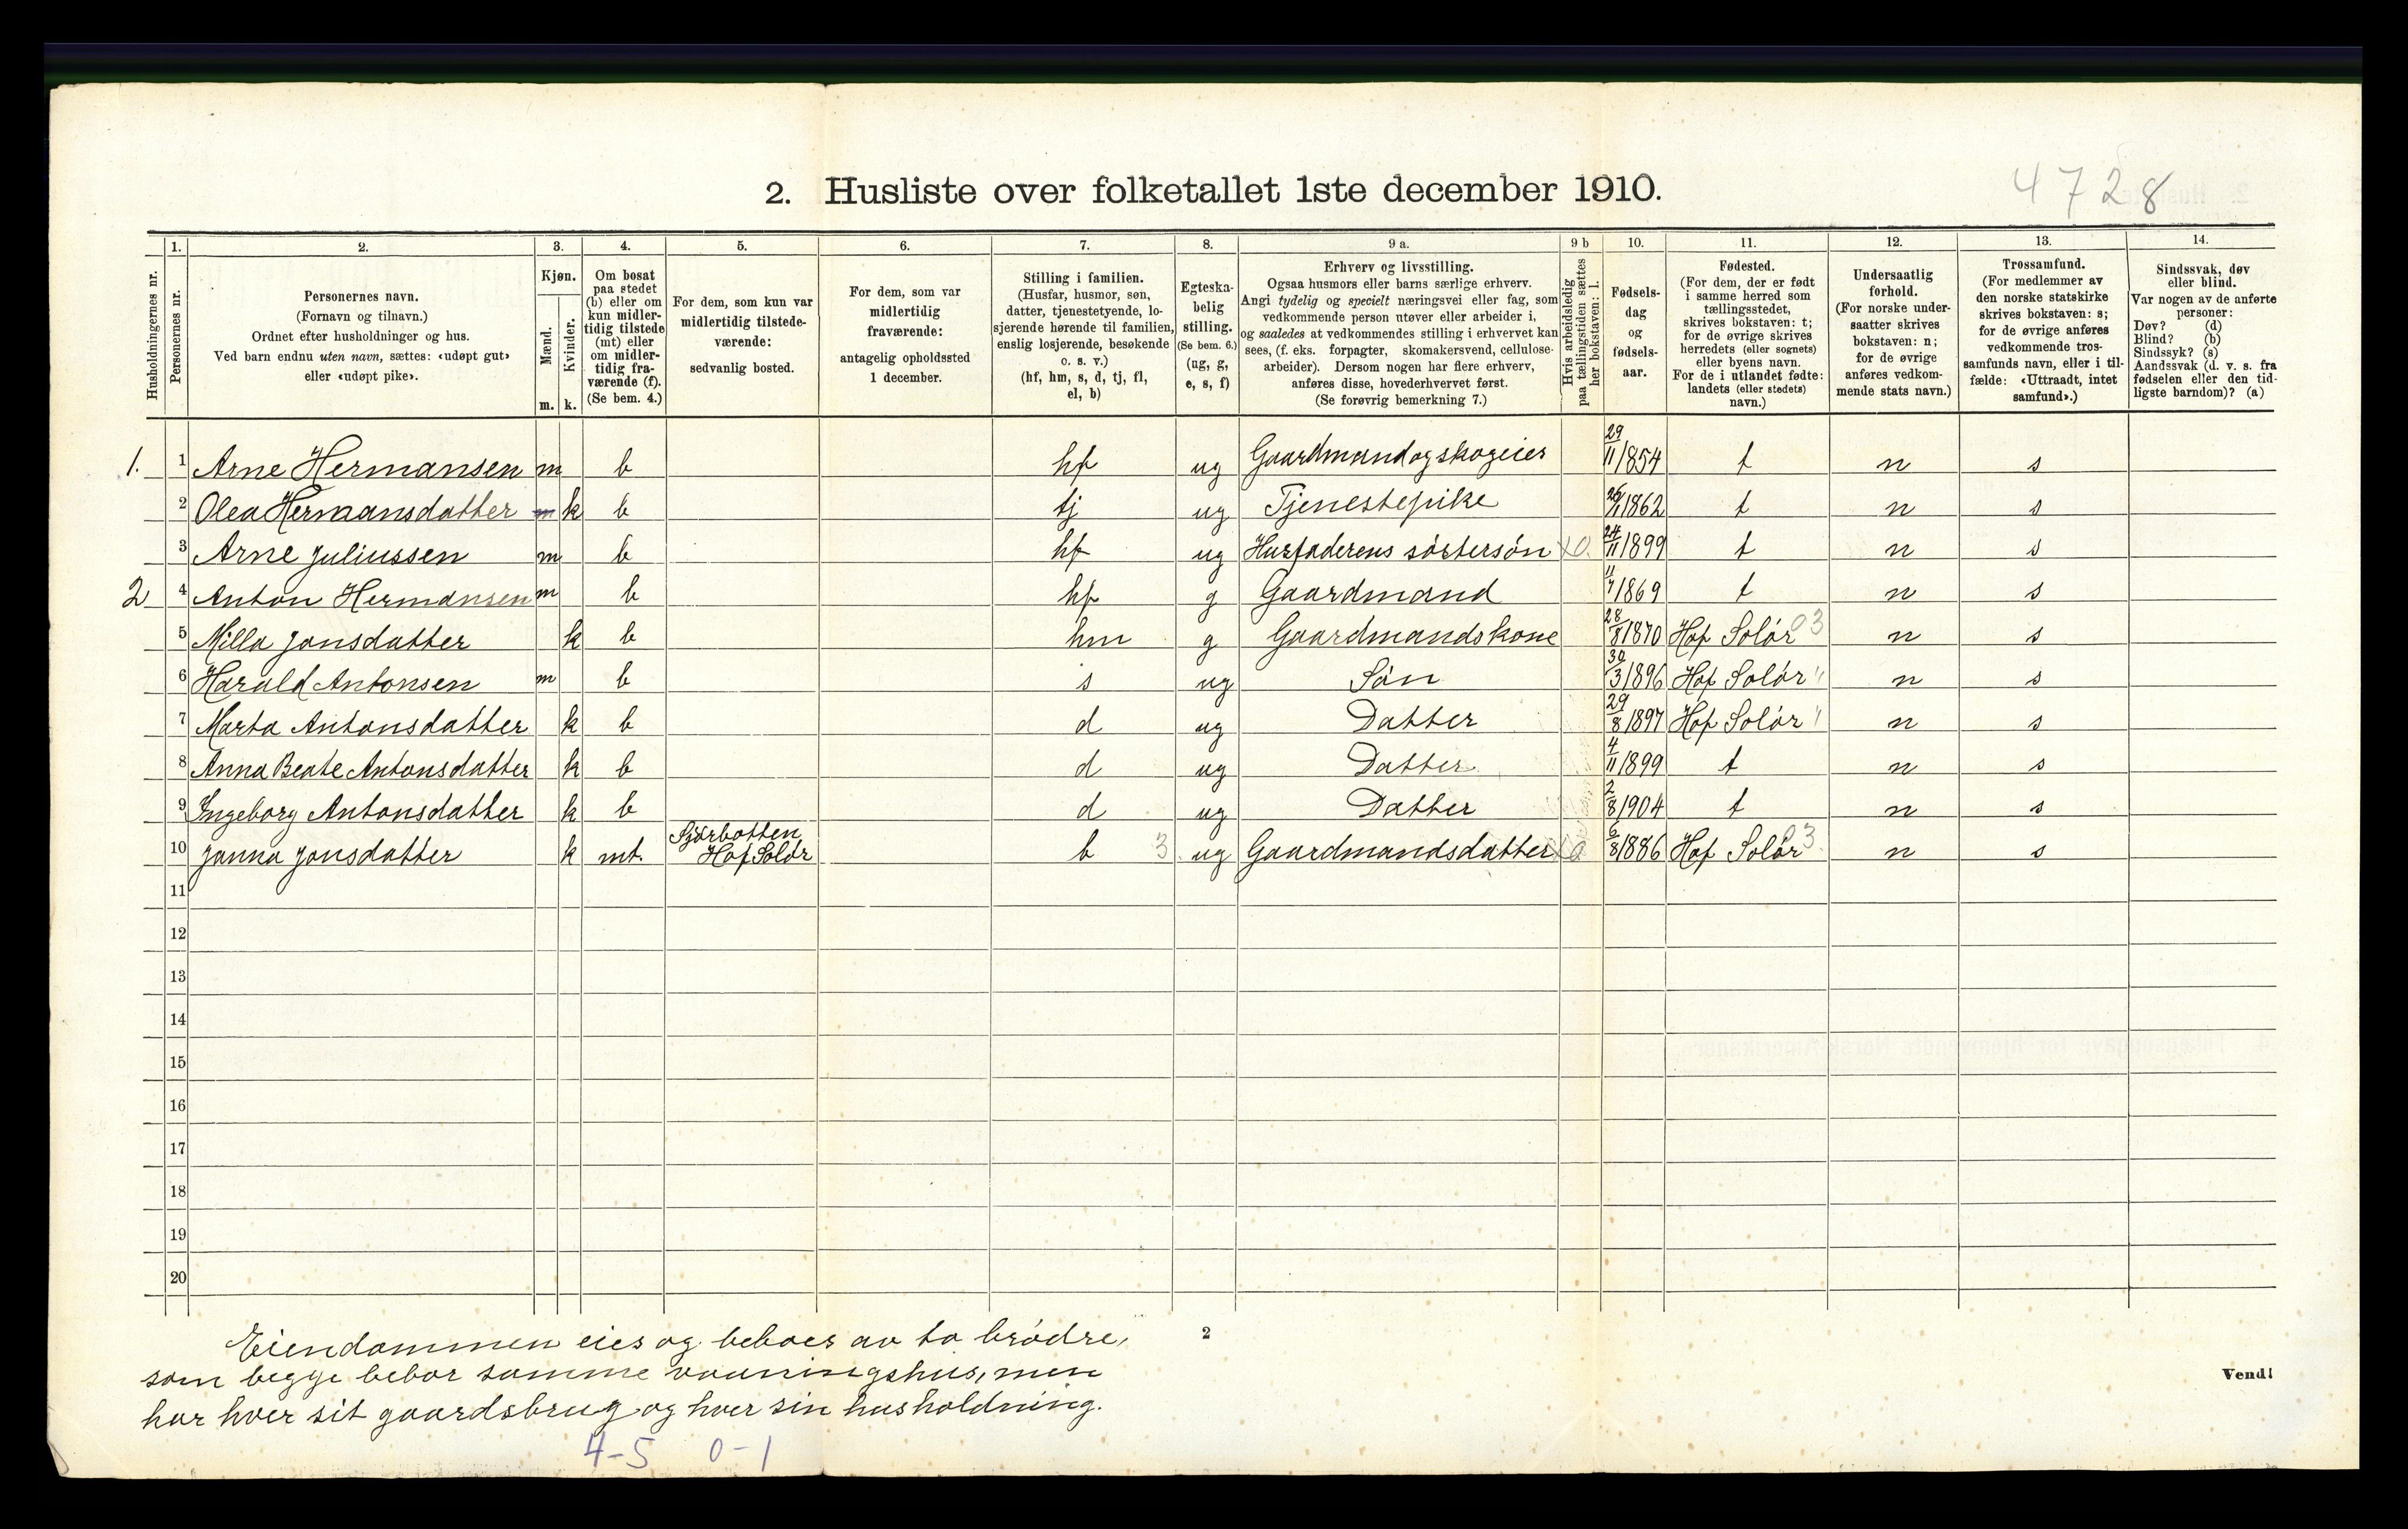 4728
2. Husliste over folketallet 1ste december 1910.
Husholdningernes nr.
1.
Personernes nr.
2.
Personernes navn.
(Fornavn og tilnavn.)
Ordnet efter husholdninger og hus.
Ved barn endnu uten navn, sættes: «udøpt gut»
eller «udøpt pike».
3.
Kjøn.
Mænd.
Kvinder.
m. k.
4.
Om bosat
paa stedet
(b) eller om
kun midler-
tidig tilstede
(mt) eller
om midler-
tidig fra-
værende (f).
(Se bem. 4.)
5.
For dem, som kun var
midlertidig tilstede-
værende:
sedvanlig bosted.
6.
For dem, som var
midlertidig
fraværende:
antagelig opholdssted
1 december.
7.
Stilling i familien.
(Husfar, husmor, søn,
datter, tjenestetyende, lo-
sjerende hørende til familien,
enslig losjerende, besøkende
o. s. v.)
(hf, hm, s, d, tj, fl,
el, b)
8.
Egteska-
belig
stilling.
(Se bem. 6.)
(ug, g,
e, s, f)
9 a.
Erhverv og livsstilling.
Ogsaa husmors eller barns særlige erhverv.
Angi tydelig og specielt næringsvei eller fag, som
vedkommende person utøver eller arbeider i,
og saaledes at vedkommendes stilling i erhvervet kan
sees, (f. eks. forpagter, skomakersvend, cellulose-
arbeider). Dersom nogen har flere erhverv,
anføres disse, hovederhvervet først.
(Se forøvrig bemerkning 7.)
9 b
Hvis arbeidsledig
paa tællingstiden sættes
her bokstaven: l.
10.
Fødsels-
dag
og
fødsels-
aar.
11.
Fødested.
(For dem, der er født
i samme herred som
tællingsstedet,
skrives bokstaven: t;
for de øvrige skrives
herredets (eller sognets)
eller byens navn.
For de i utlandet fødte:
landets (eller stedets)
navn.)
12.
Undersaatlig
forhold.
(For norske under-
saatter skrives
bokstaven: n;
for de øvrige
anføres vedkom-
mende stats navn.)
13.
Trossamfund.
(For medlemmer av
den norske statskirke
skrives bokstaven: s;
for de øvrige anføres
vedkommende tros-
samfunds navn, eller i til-
fælde: «Uttraadt, intet
samfund».)
14.
Sindssvak, døv
eller blind.
Var nogen av de anførte
personer:
Døv? (d)
Blind? (b)
Sindssyk? (s)
Aandssvak (d. v. s. fra
fødselen eller den tid-
ligste barndom)? (a)
1. 1 Arne Hermansen m b hf ug Gaardmand og skogeier 29/11 1854 t n s
2 Olea Hermansdatter m k b tj ug Tjenestepike 1862 t n s
3 Arne Juliussen m b hf ug Husfaderens søstersøn 24/11 1899 t n s
2 4 Anton Hermansen m b hf g Gaardmand 11/7 1869 t n s
5 Milla Jonsdatter k b hm g Gaardmandskone 28/8 1870 Hof Solør 03 n s
6 Harald Antonsen m b s ug Søn 30/3 1896 Hof Solør " n s
7 Marta Antonsdatter k b d ug Datter 29/8 1897 Hof Solør " n s
8 Anna Beate Antonsdatter k b d ug Datter 4/11 1899 t n s
9 Ingeborg Antonsdatter k b d ug Datter 2/8 1904 t n s
10 Janna Jonsdatter k mt. Hof Solør b 3 ug Gaardmandsdatter 6/8 1886 Hof Solør 03 n s
11
12
13
14
15
16
17
18
19
20
Eiendommen eies og beboes av to brødre,
som begge bebor samme vaaningshus, men
har hver sit gaardsbrug og hver sin husholdning.
2
Vend!
4-5 0-1